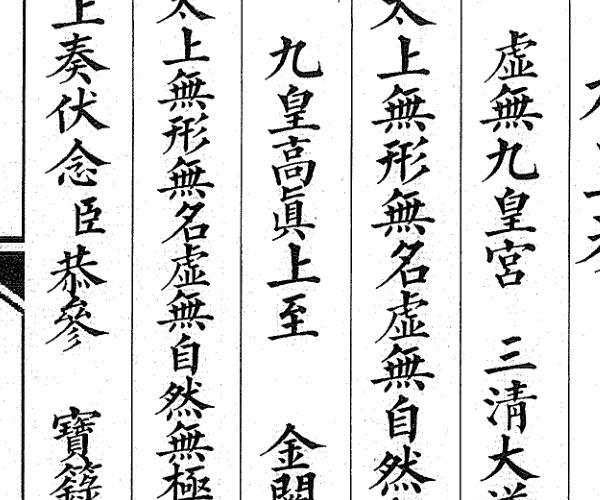 虛無九皇宮　三清大
太上無形無名虛無自然
九皇高眞上至　金闕
太上無形無名虛無自然無極
上奏伏念臣恭參　寶籙